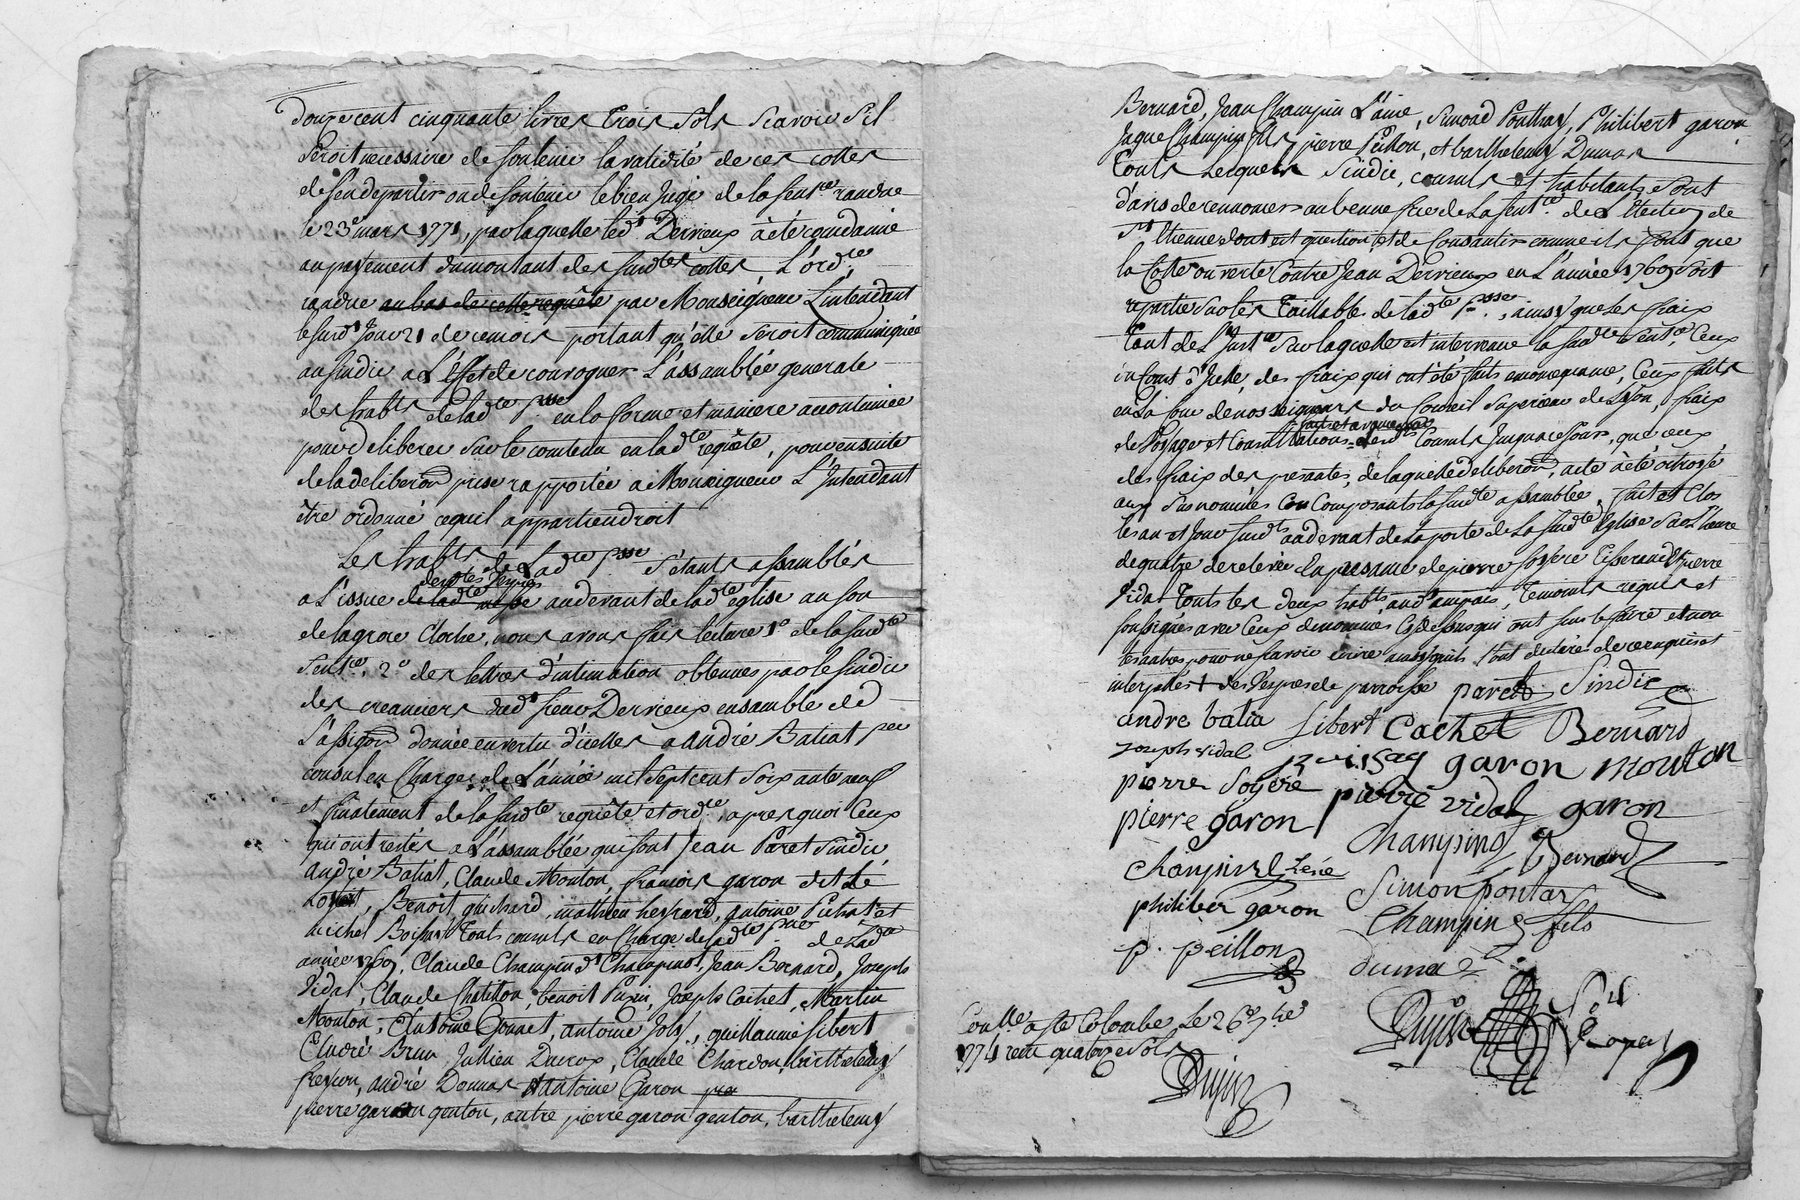 Douze cent cinquante livres trois sols scavoir s'il
seroit necessaire de soutenir la validité de ces cottes
de s'en departir ou de soutenir le bien jugé de la sentce randue
le 23e mars 1771, par laquelle led. Sr Dervieux à été condamné
au payement du montant des susdtes cottes, L'ordce
randue au bas de cette requête par Monseigneur L'intendant
le susdt jour 21 de ce mois portant qu'elle seroit communiquée
au sindic a L'effet de convoquer L'assamblée generale
des habts de ladte psse en la forme et maniere accoutumée
pour deliberer sur le contenu en ladte requête, pour ensuite
de la deliberon prise rapportée a Monseigneur L'Intendant
être ordonné ce qu'il appartiendroit
Les habts de Ladte psse s'étants assamblés
des vêpres
a L'issue de ladte messe audevant de ladte eglise au son
de la grosse cloche, nous avons fais lecture 1o de la susdte
sentce, 2o des lettres d'intimation obtenues par le sindic
des creanciers dudt sieur Dervieux ensamble de
L'assigon donnée en vertu d'icelles a André Batiat per
consul en charge de L'année mil sept cent soixante neuf
et finalement de la susdte requête et ordce, apres quoi ceux
qui ont restés a L'assamblée qui sont Jean Paret sindic
André Batiat, Claude Mouton, françois garon dit Le
Benoit guichard, mathieu heyrard, antoine Pichat et
michel Boissat touts consuls en charge de ladte psse de Ladte
année 1769, Claude Champin dt Champinot, Jean Bernard, Joseph
Vidal, Claude Chatillon, benoit Pupin, Joseph Cachet, Martin
Mouton, Antoine Gonnet, antoine Joly, guillaume sibert
André Brun, Jullien Ducrop, Claude Chardon, barthelemy
freycon, andré Dumas Antoine Garon
pierre garon genton, autre pierre garon genton, barthelemy
Bernard, Jean Champin L'ainé, Simond Ponthay, Philibert garon
Jaque Champin fils, pierre Peillon, et barthelemy Dumas
touts Lesquels sindic, consuls et habitants sont
d'avis de renoncer au benne fice de La sentce de L'Election de
St Etienne dont est question, et de consantir comme ils font que
la cotte ouverte contre Jean Dervieux en L'année 1769 soit
repartie sur les taillables de ladte psse, ainsy que les fraix
tant de L'instce sur laquelle est intervenue la susdte sentce, ceux
des fraix qui ont été faits ceux faits
en la cour de nosseigneurs du Conseil Superieur de Lyon, fraix
de voyage et consultations desdts Consuls jusqu'a ce jour, que ceux
des fraix des presentes, de laquelle deliberon, acte à été octroyé
aux susnommés composants la susdte assamblée, fait et clos
les an et jour susdts audevant de la porte de La susdte Eglise sur L'heure
de quatre de relevée en presance de pierre soyere tisserand et pierre
Vidal touts les deux habts temoins requis et
soussignés avec ceux denommés cy dessus qui ont sçus le faire et non
les autres pour ne sçavoir ecrire ainsy qu'ils l'ont declaré de ce enquis et
interpellés + des vêpres de parroisse paret Sindic
andre batia sibert Cachet Bernard
joseph vidal garon mouton
pierre soyere pierre vidal garon
pierre garon Champin Bernard
champin L'ené Simon pontay
philiber garon Champin fils
p. peillon dumas
Coulle a Ste Colombe Le 26e 7bre
1774 reçu quatorze sols